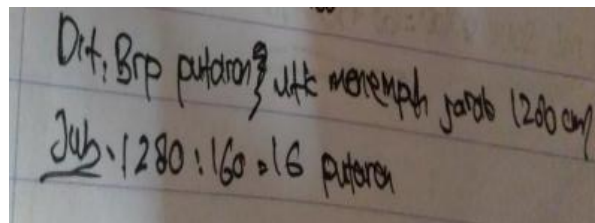 Dit: Brp putaran utk menempuh jarak 1280 cm
Jwb. 1280 : 160 = 16 putaran